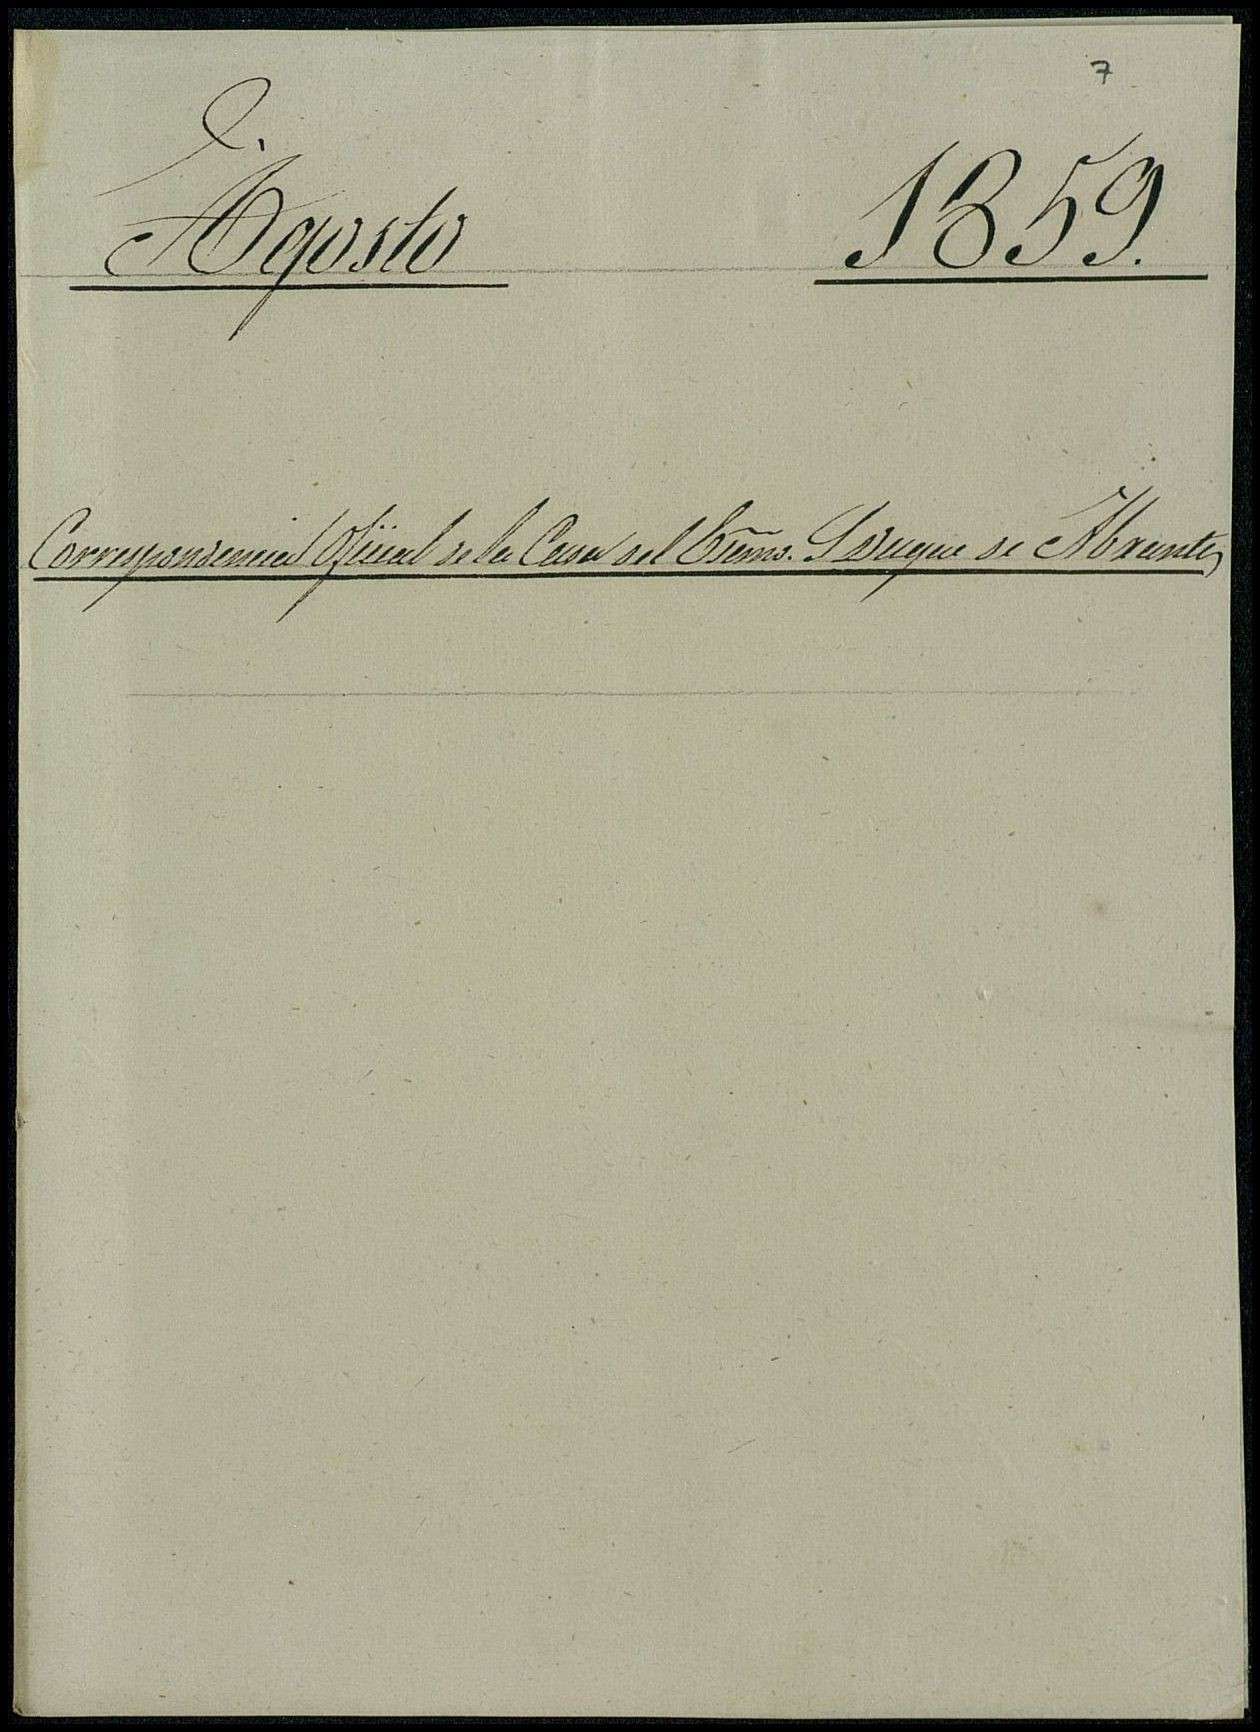 7
Agosto 1859.
Correspondencia Oficial de la Casa del Excmo. S Duque de Abrantes